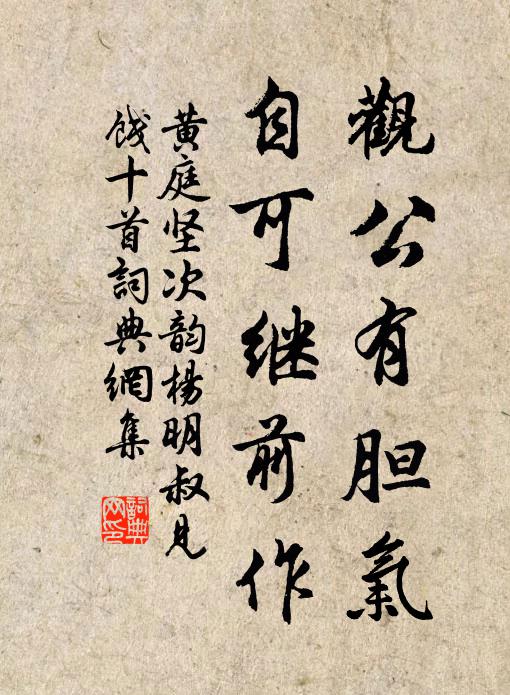 觀公有胆氣
自可继前作
黄庭坚次韵楊明叔見
餞十首詞典網集
詞典
网印